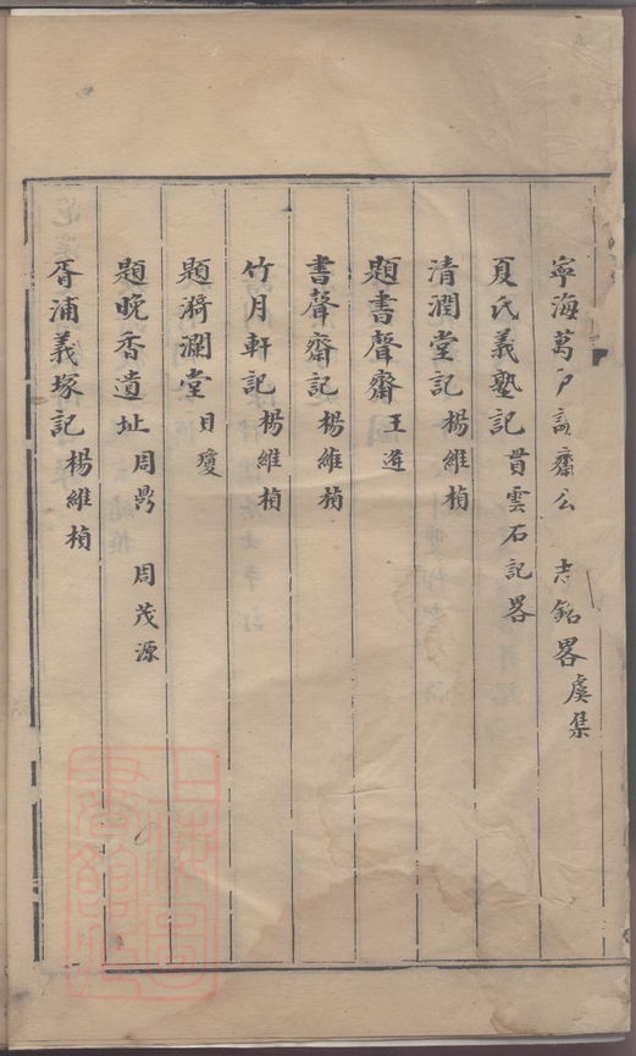 寧海萬戶諴齋公 志銘畧 虞集
夏氏義塾記 貫雲石記畧
清潤堂記 楊維楨
題書聲齋 王逰
書聲齋記 楊維楨
竹月軒記 楊維楨
題漪瀾堂 貝瓊
題晚香遺址 周鼎 周茂源
胥浦義塚記 楊維楨
上海圖書館藏